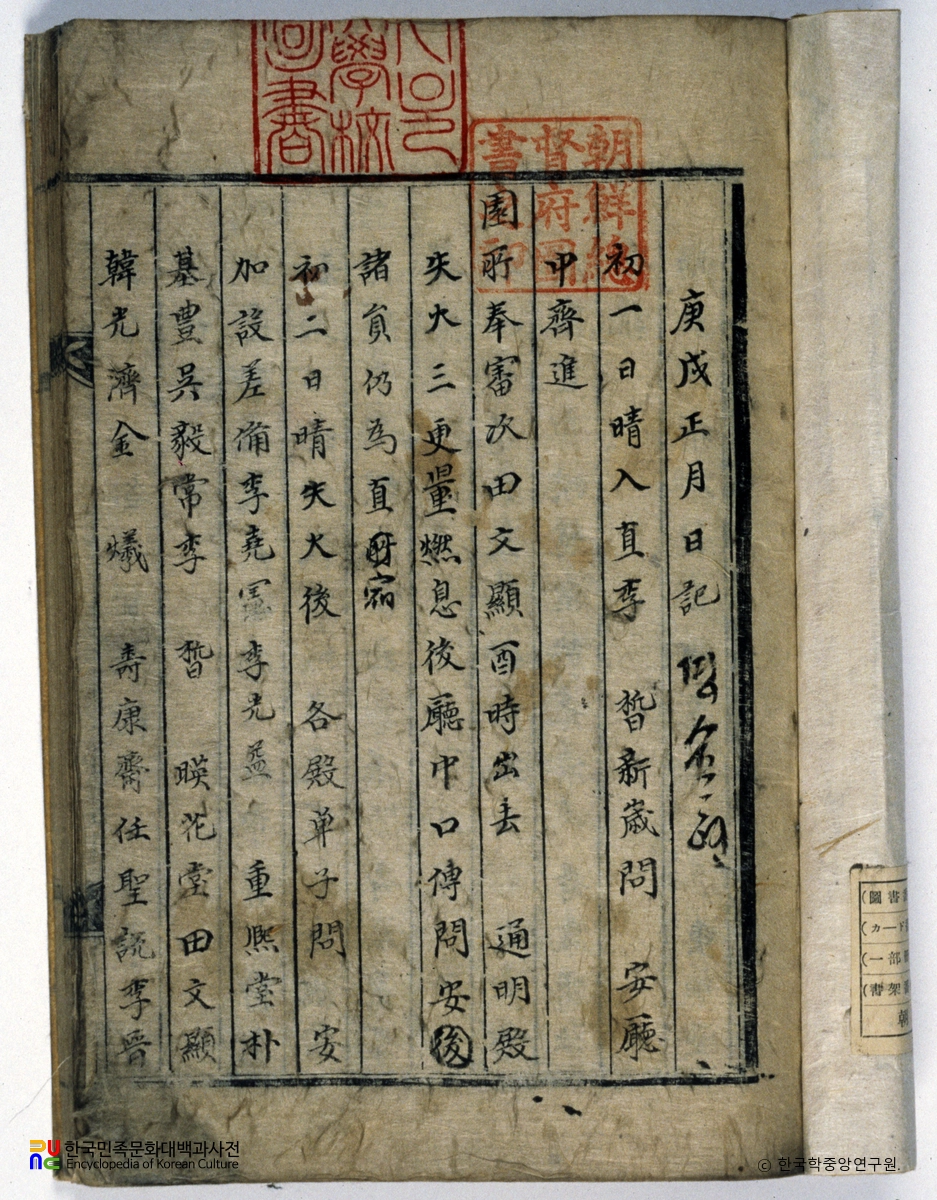 庚戌正月日記
初一日晴入直李 晳新歲問 安廳
中齊進
園所奉審次田文顯酉時出去 通明殿
失火三更量燃息後廳中口傳問安後
諸員仍為直宿
初二日晴失火後 各殿單子問 安
加設差備李堯憲李光益 重熙堂朴
基豊吳毅常李 晳 暎花堂田文顯
韓光濟金 爔 壽康齋任聖說李晉
朝鮮總
督府圖
書之印
學校
圖書
(圖書
(カード
(一部
(書架
朝
한국민족문화대백과사전
Encyclopedia of Korean Culture
© 한국학중앙연구원.